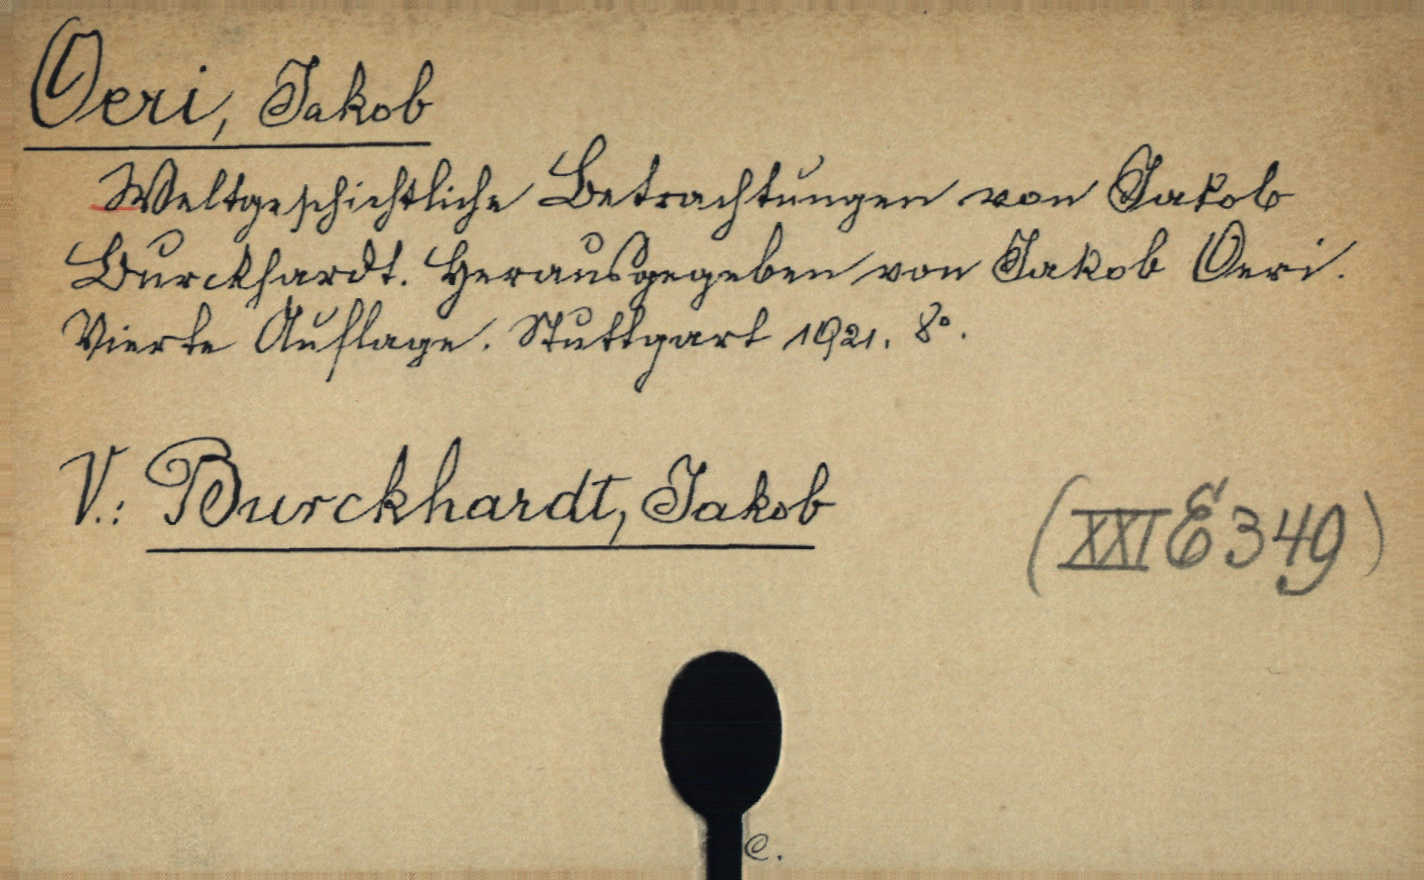 Oeri, Jakob
Weltgeschichtliche Betrachtungen von Jakob
Burckhardt. Herausgegeben von Jakob Oeri.
Vierte Auflage. Stuttgart 1921. 8°.
V.: Burckhardt, Jakob
(XXI E 349)
C.